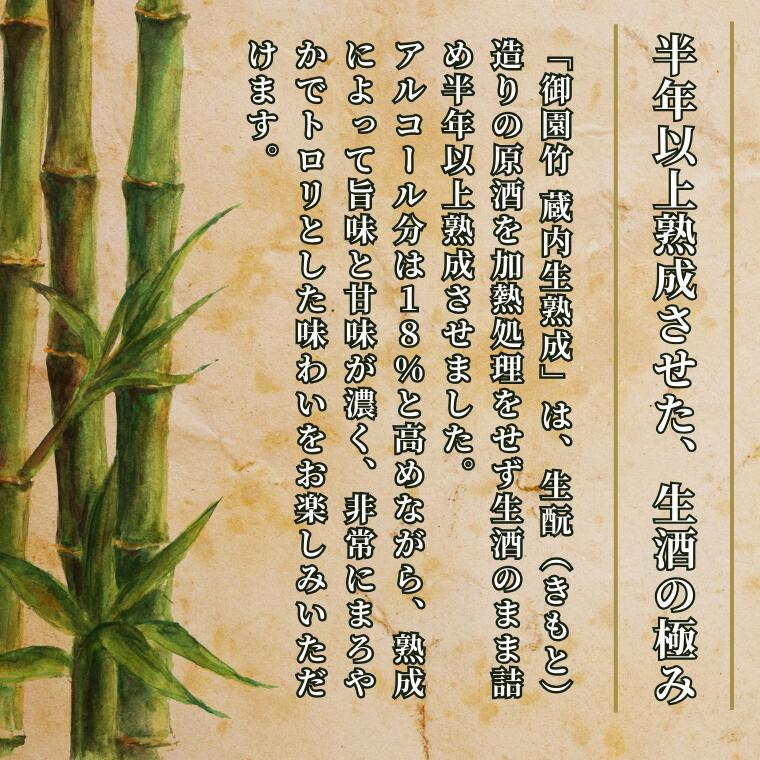 半年以上熟成させた、生酒の極み
「御園竹 蔵内生熟成」は、生酛（きもと）
造りの原酒を加熱処理をせず生酒のまま詰
め半年以上熟成させました。
アルコール分は18%と高めながら、熟成
によって旨味と甘味が濃く、非常にまろや
かでトロリとした味わいをお楽しみいただ
けます。